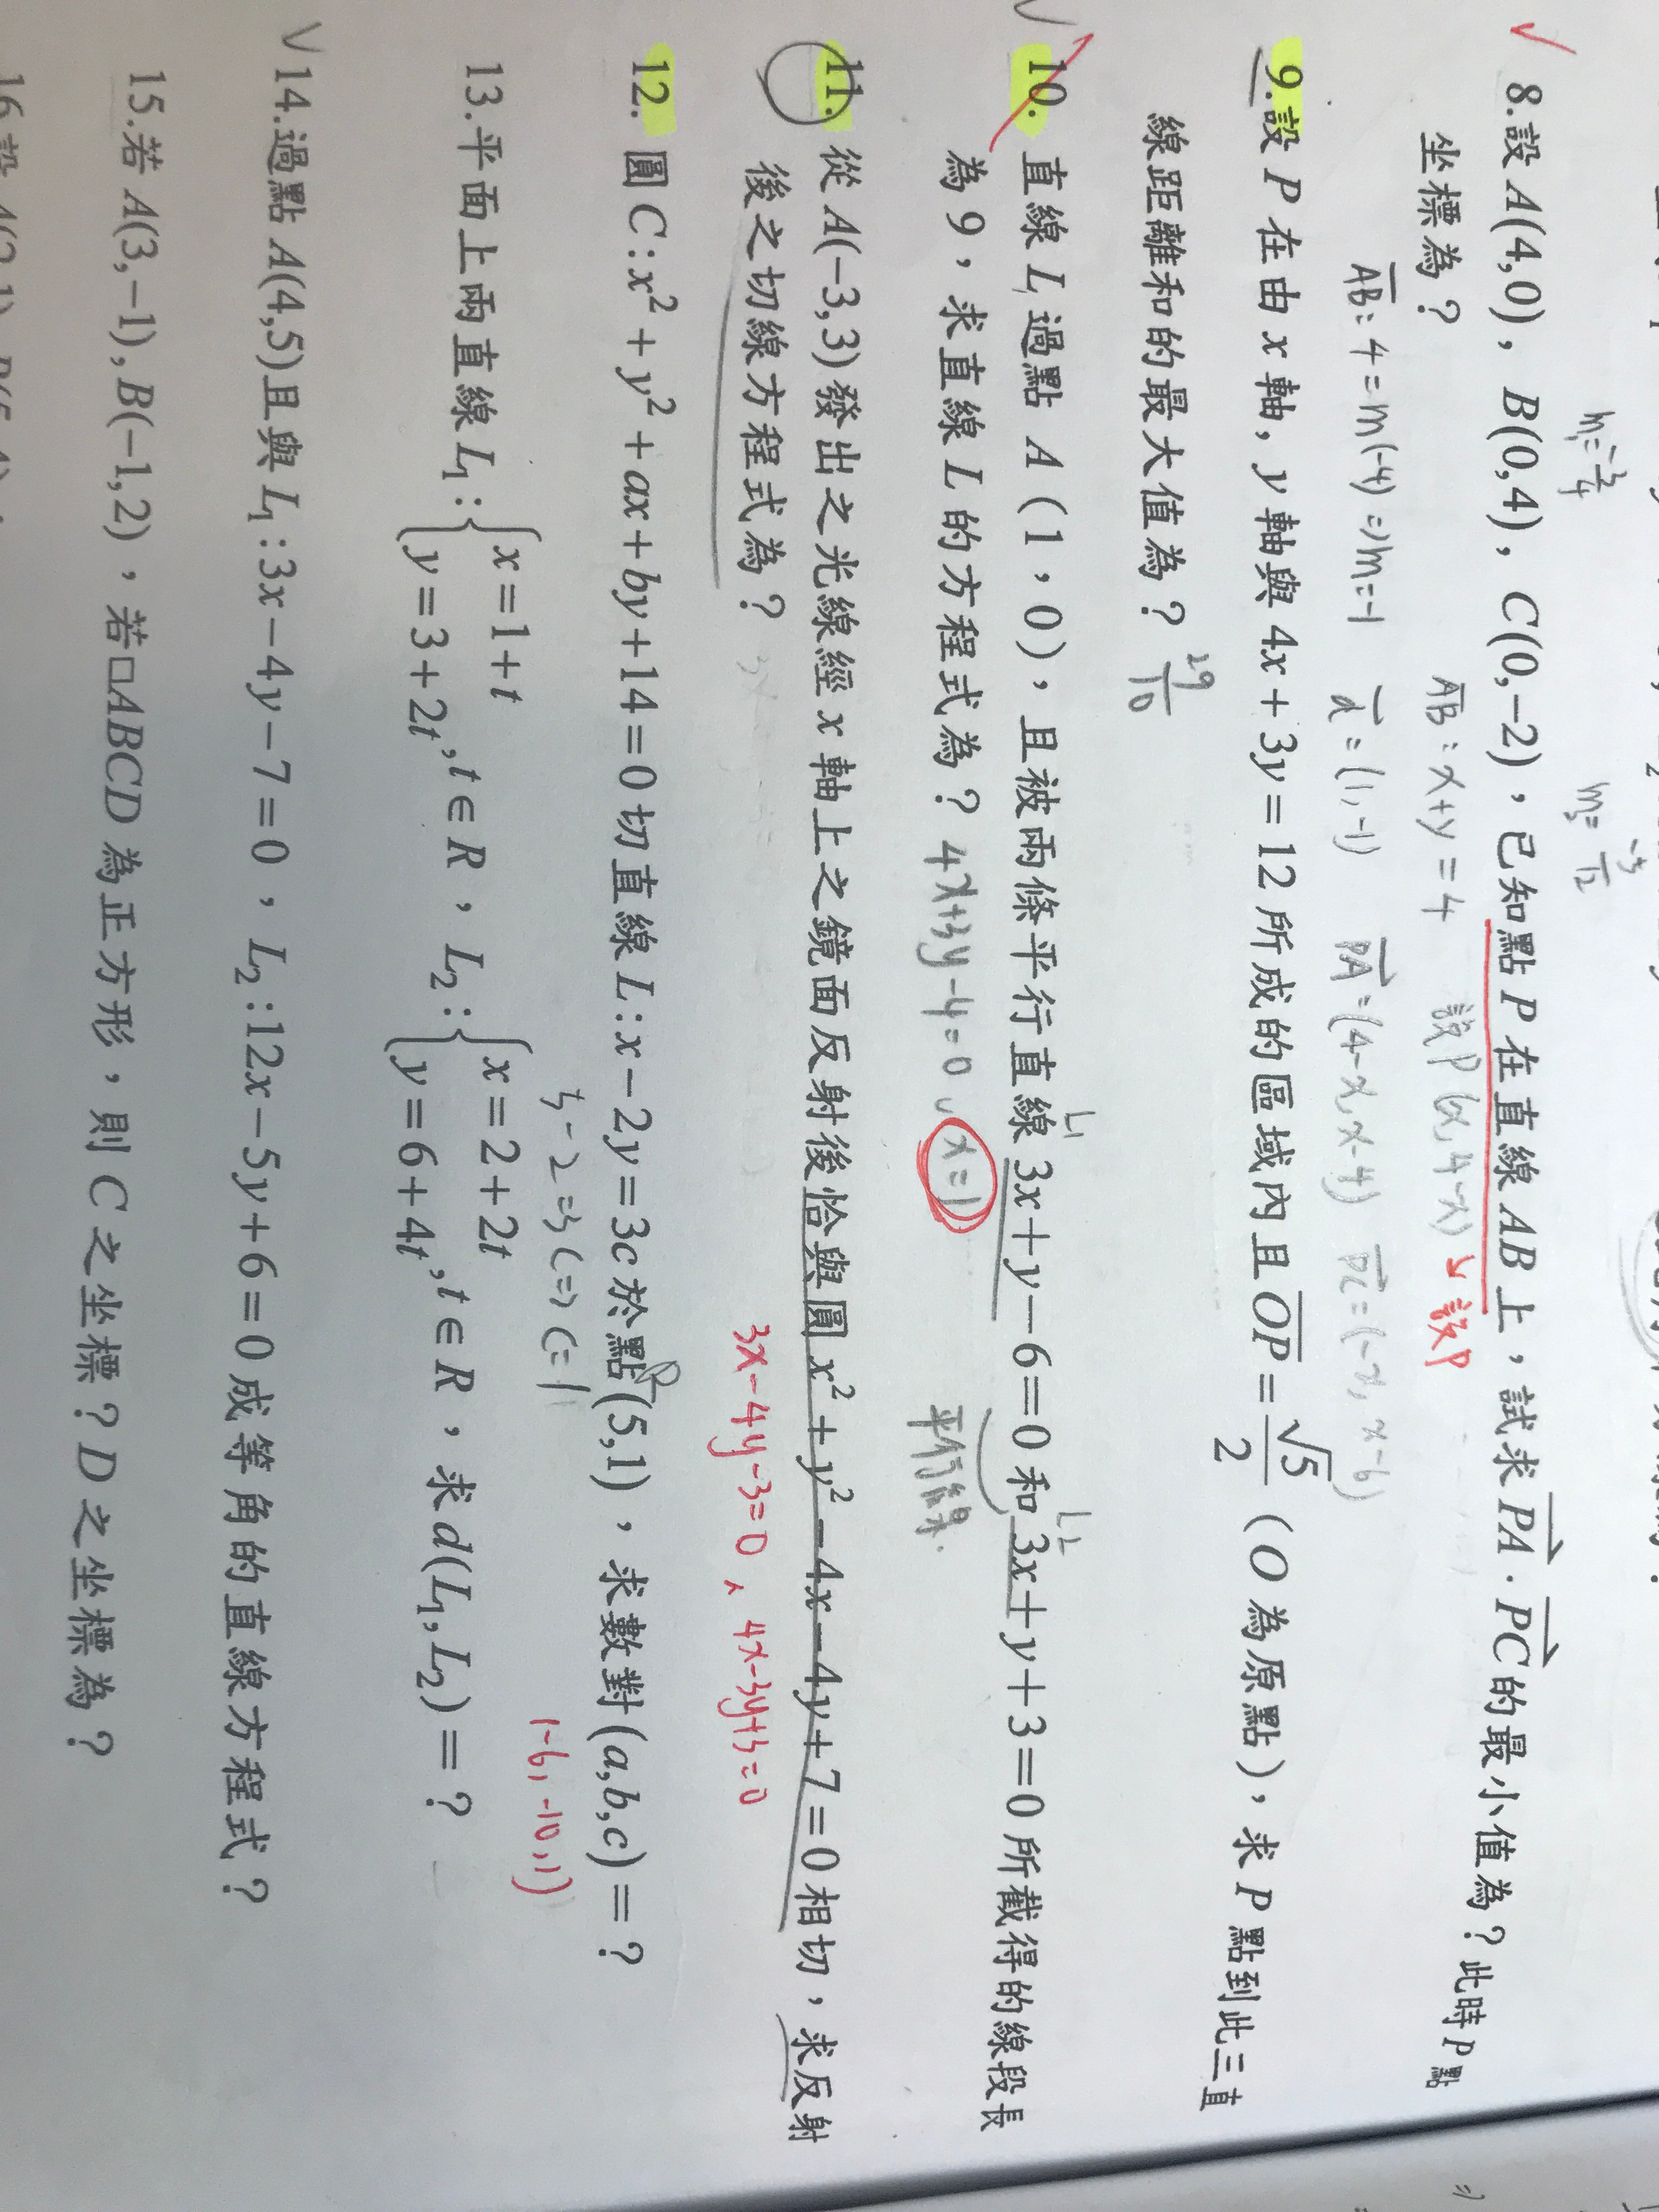 m₁=-3/4
m₂=-5/12
8.設 A(4,0),B(0,4),C(0,-2),已知點 P 在直線 AB 上,試求 PA·PC 的最小值為?此時 P 點
坐標為?
AB:x+y=4 設P(x,4-x) ↘設P
AB:4=m(-4)⇒m=-1 d=(1,-1) PA=(4-x,x-4) PC=(-x,x-6)
9.設 P 在由 x 軸,y 軸與 4x+3y=12 所成的區域內且 OP=√5/2(O 為原點),求 P 點到此三直
線距離和的最大值為? 29/10
10. 直線 L 過點 A(1,0),且被兩條平行直線 3x+y-6=0 和 3x+y+3=0 所截得的線段長
L₁ L₂
為 9,求直線 L 的方程式為? 4x+3y-4=0、x=1 平行線
11. 從 A(-3,3)發出之光線經 x 軸上之鏡面反射後恰與圓 x²+y²-4x-4y+7=0 相切,求反射
後之切線方程式為? 3x-4y-3=0、4x-3y+3=0
12. 圓 C:x²+y²+ax+by+14=0 切直線 L:x-2y=3c 於點(5,1),求數對(a,b,c)=?
5-2=3c⇒c=1 (-6,-10,1)
13.平面上兩直線 L₁:{x=1+t y=3+2t,t∈R,L₂:{x=2+2t y=6+4t,t∈R,求 d(L₁,L₂)=?
14.過點 A(4,5)且與 L₁:3x-4y-7=0,L₂:12x-5y+6=0 成等角的直線方程式?
15.若 A(3,-1),B(-1,2),若□ABCD 為正方形,則 C 之坐標?D 之坐標為?